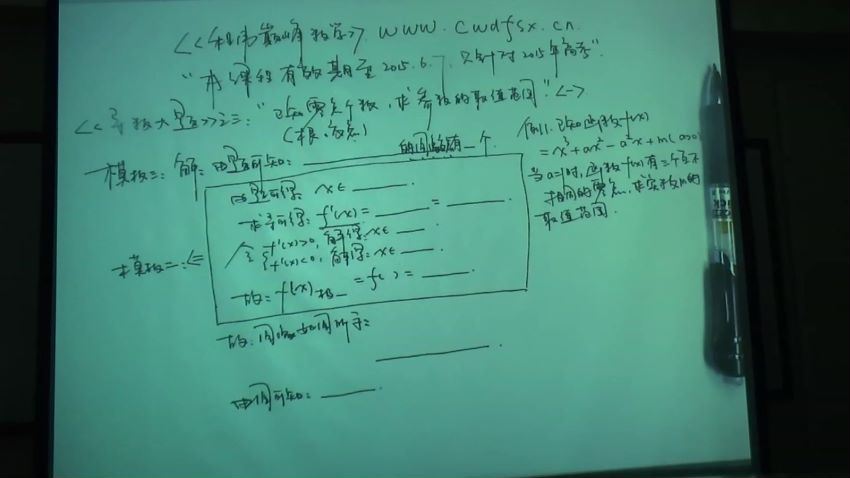 <<程伟巅峰数学>> www.cwdfsx.cn.
"本课程有效期至2015.6.7, 只针对2015年高考"
<<导数大题>>之三: "已知零点个数, 求参数的取值范围." <一>
(根、交点)
模板三: 解: 由题可知: ______ 的图象有_个.
由题可得: x∈ ______.
求导可得: f'(x) = ______ = ______.
令 { f'(x)>0, 解得: x∈ ______.
f'(x)<0, 解得: x∈ ______.
故: f(x)极_ = f( ) = ______.
模板二: ⇐
故: 图象如图所示:
______.
由图可知: ______.
例1. 已知函数f(x)
= x³+ax²-a²x+m(a>0)
当a=1时, 函数f(x)有三个互不
相同的零点, 求实数m的
取值范围.